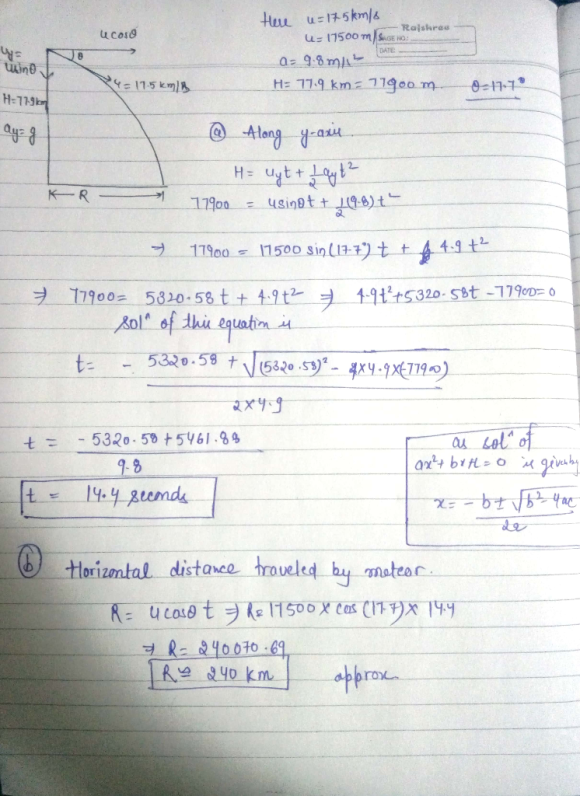 Here u=17.5km/s
u = 17500 m/s
Rajshree
PAGE NO.:
DATE:
a = 9.8 m/s²
H = 77.9 km = 77900 m θ=17.7°
ucosθ
θ
uy=
usinθ
u = 17.5 km/s
H=77.9km
ay=g
R
(a) Along y-axis.
H = uyt + 1/2 ayt²
77900 = usinθt + 1/2(9.8)t²
⇒ 77900 = 17500 sin(17.7°) t + 4.9 t²
⇒ 77900 = 5320.58t + 4.9t² ⇒ 4.9t²+5320.58t -77900=0
solⁿ of this equation is
t= - 5320.58 + √(5320.58)² - 4×4.9×(-77900)
2×4.9
t = - 5320.58 + 5461.88
9.8
t = 14.4 seconds
as solⁿ of
ax²+bx+c = 0 is given by
x = - b ± √b²-4ac
2a
(b) Horizontal distance traveled by meteor.
R = ucosθ t ⇒ R= 17500 × cos (17.7) × 14.4
⇒ R = 240070.69
R ≅ 240 km approx